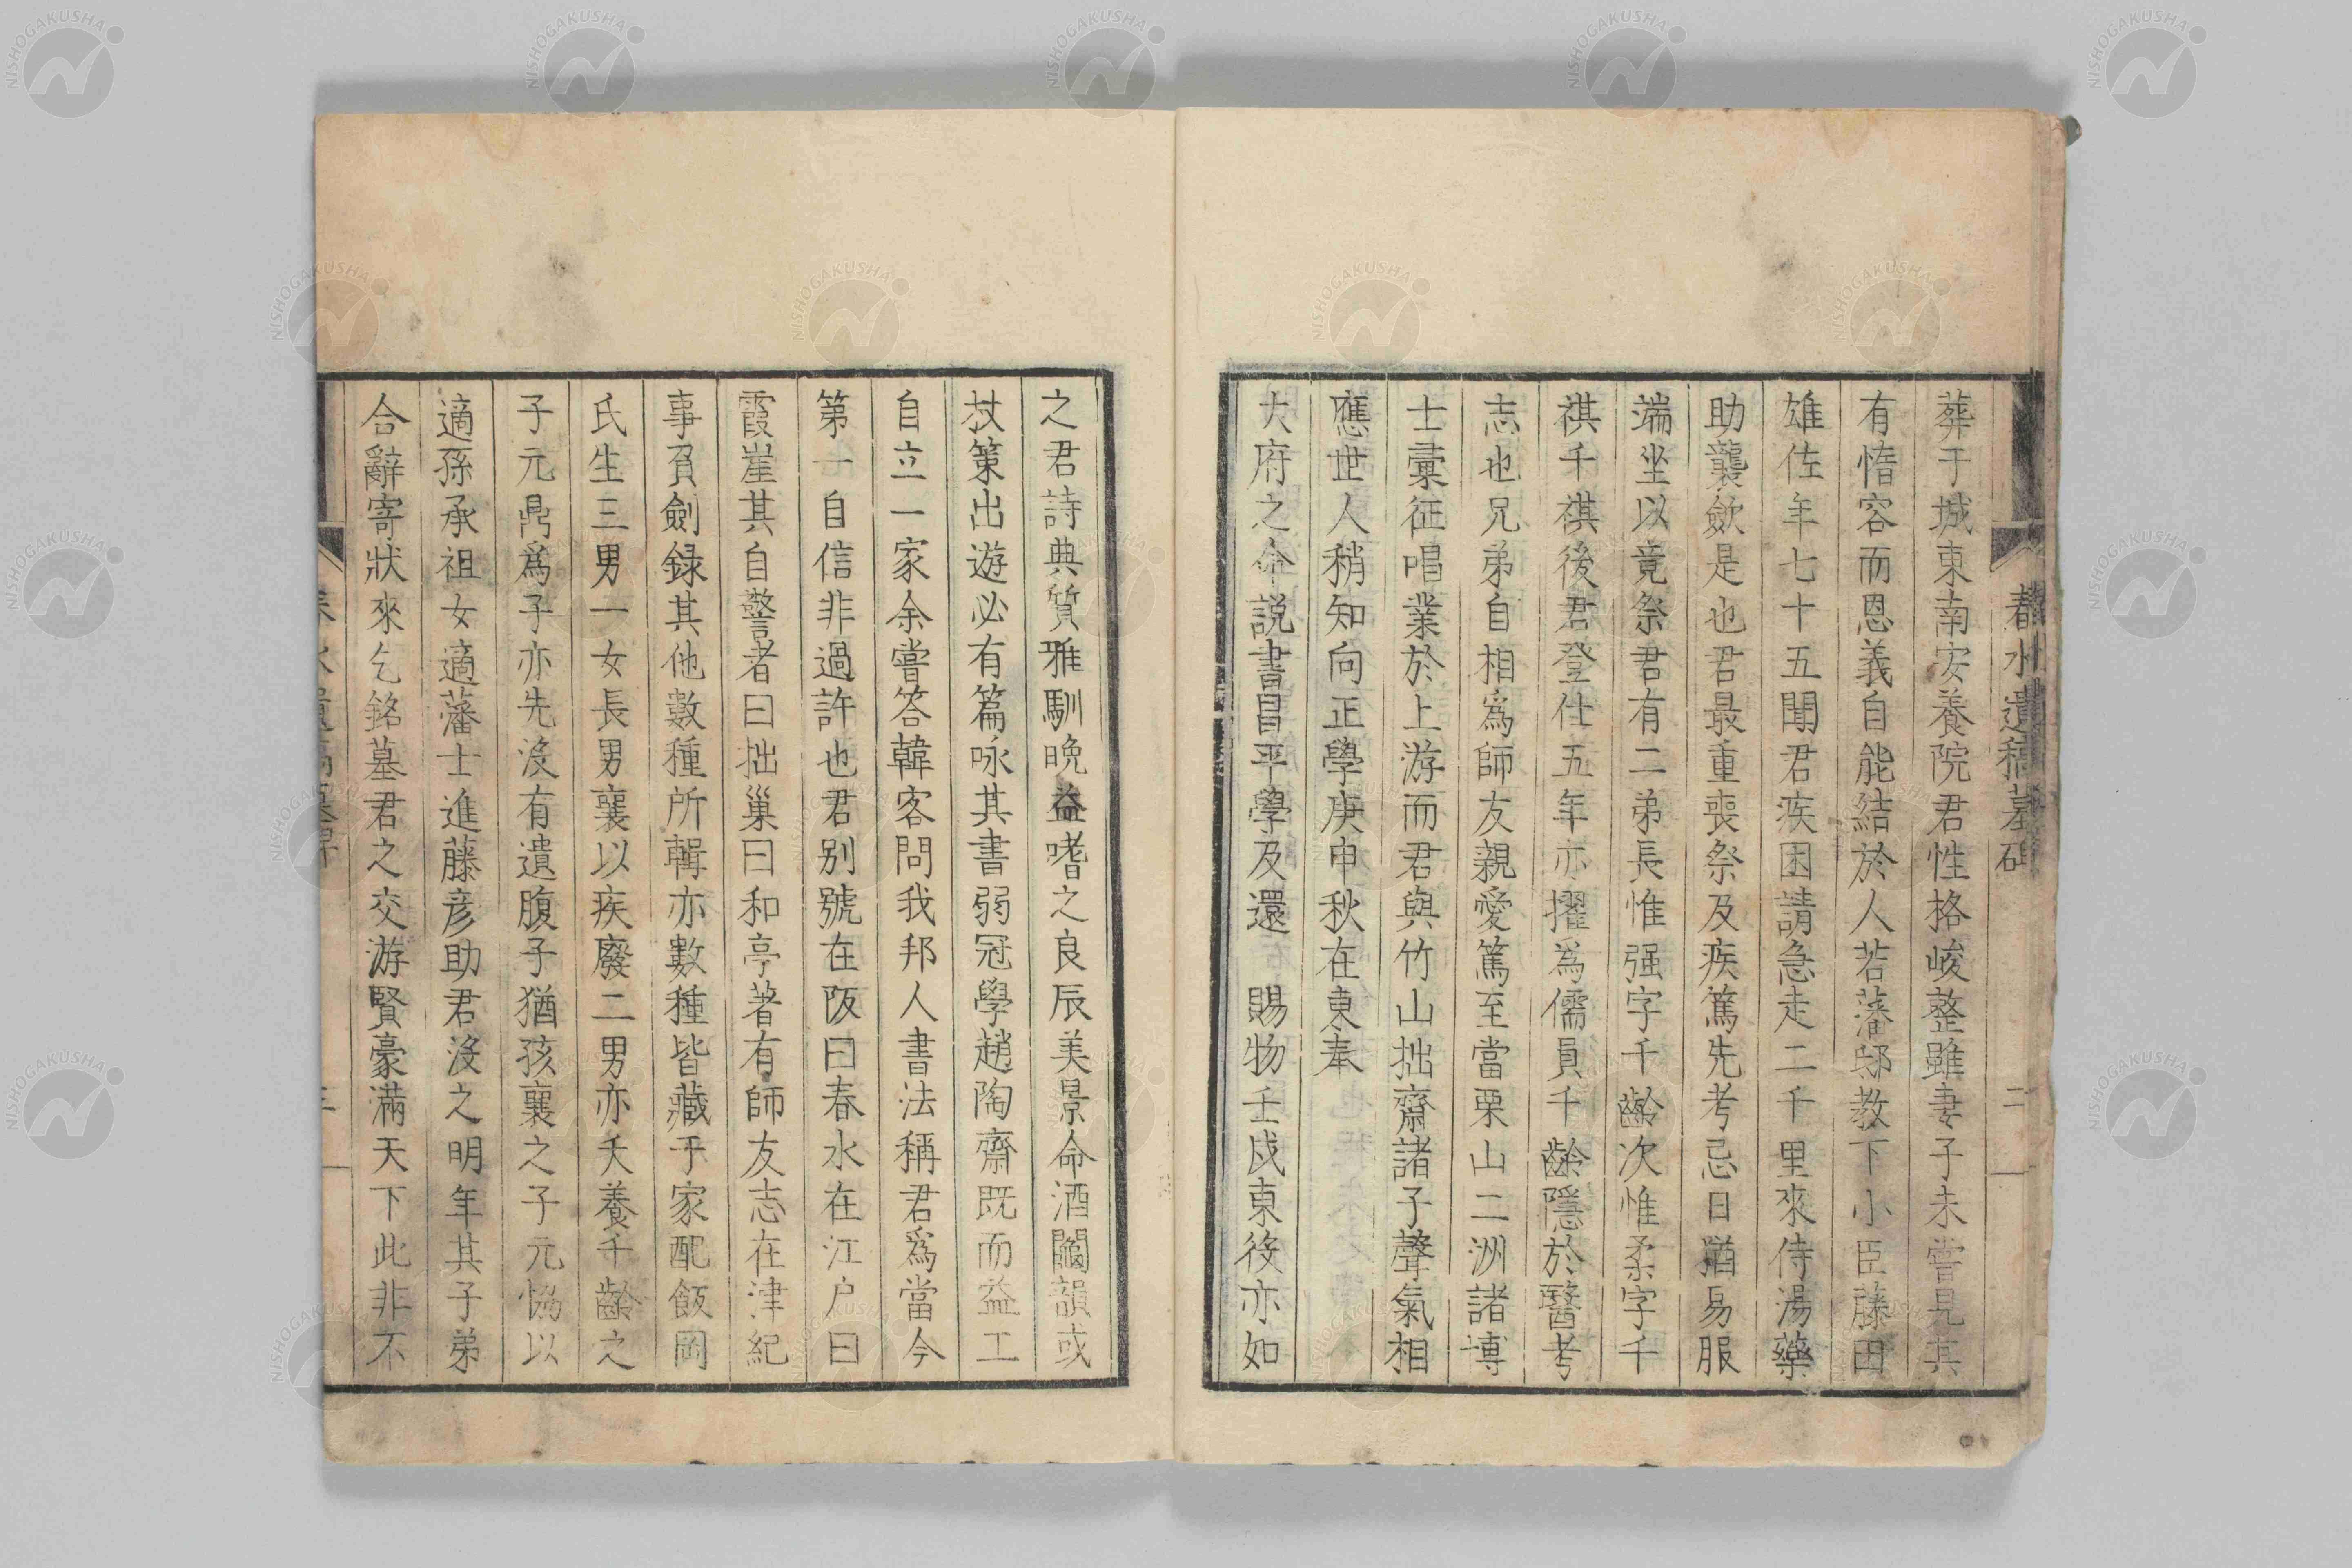 春水遺稿墓碑 二
葬于城東南安養院君性格峻整雖妻子未嘗見其
有惰容而恩義自能結於人若藩邸教下小臣藤田
雄佐年七十五聞君疾困請急走二千里來侍湯藥
助襲斂是也君最重喪祭及疾篤先考忌日猶易服
端坐以竟祭君有二弟長惟强字千齡次惟柔字千
祺千祺後君登仕五年亦擢爲儒員千齡隱於醫考
志也兄弟自相爲師友親愛篤至當栗山二洲諸博
士彙征唱業於上游而君與竹山拙齋諸子聲氣相
應世人稍知向正學庚申秋在東奉
大府之命説書昌平學及還 賜物壬戌東役亦如
之君詩典質雅馴晩益嗜之良辰美景命酒鬮韻或
杖策出遊必有篇咏其書弱冠學趙陶齋既而益工
自立一家余嘗答韓客問我邦人書法稱君爲當今
第一自信非過許也君别號在阪曰春水在江户曰
霞崖其自警者曰拙巢曰和亭著有師友志在津紀
事負劍録其他數種所輯亦數種皆藏于家配飯岡
氏生三男一女長男襄以疾廢二男亦夭養千齡之
子元鼎爲子亦先没有遺腹子猶孩襄之子元協以
適孫承祖女適藩士進藤彦助君没之明年其子弟
合辭寄狀來乞銘墓君之交游賢豪滿天下此非不
春水遺稿墓碑 三
NISHOGAKUSHA